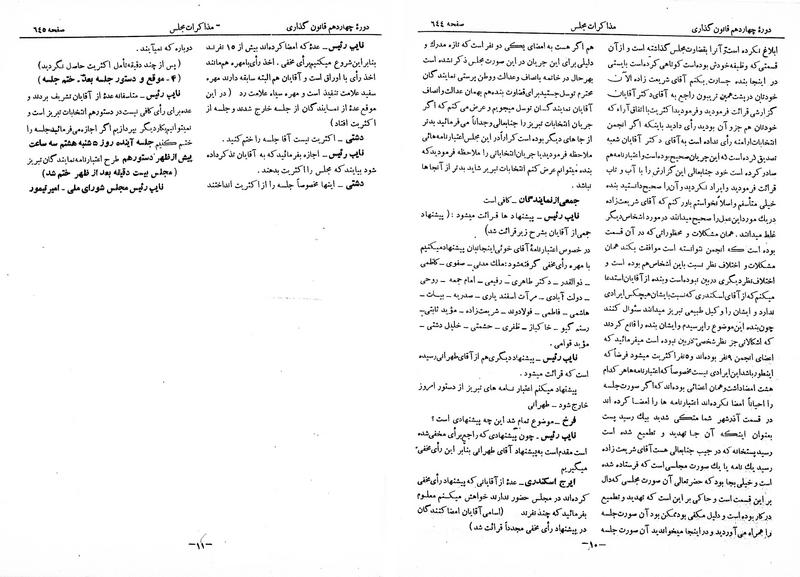 دورهٔ چهاردهم قانون گذاری
مذاکرات مجلس
صفحه ۶۴۴
ابلاغ نکرده است و آنرا بقضاوت مجلس گذاشته است و از آن
قسمتی که وظیفه خودش بوده است کوتاهی کرده است و باید
در اینجا بنده جسارت بکنم آقای شریعت زاده الان
خودتان در پشت همین تریبون راجع به آقای دکتر آقایان
گزارشی قرائت فرمودید و فرمودید اکثریت با اتفاق آراء که
خودتان هم جزو آن بودید رأی دادید باینکه اگر انجمن
انتخابات ارامنه رأی نداده است به آقای دکتر آقایان شعبه
تصدیق کرده است که این جریان صحیح بوده است و اعتبارنامه هم
صادر کرده است خود جنابعالی این گزارش را با آب و تاب
قرائت فرمودید و ایراد نکردید و آن را صحیح دانستید بنده
خیلی متأسفم و اصلا نخواستم باور کنم که آقای شریعت زاده
در یک مورد این عمل را صحیح میدانند در مورد اشخاص دیگر
غلط میدانند. همان مشکلات و محظوراتی که در آن قسمت
بوده است که انجمن نتوانسته است موافقت بکند همان
مشکلات و اختلاف نظر نسبت باین اشخاص هم بوده است و
اختلاف نظر دیگری در بین نبوده است و بعلاوه از آقایان استدعا
میکنم که از آقای اسکندری که نسبت بایشان هیچکس ایرادی
ندارد و ایشان را وکیل طبیعی تبریز میدانند سئوال کنند
چون بنده این موضوع را پرسیدم و ایشان بنده را قانع کردند
که اشکالاتی جز نظر شخصی در بین نبوده است میفرمائید که
اعضای انجمن ۹ نفر بوده اند و ۵ نفر اکثریت میشود فرضا که
اینطور باشد این ایرادی نیست مخصوصا که اعتبارنامه ها هر کدام
هشت امضا داشت و همان اعضائی بوده اند که اگر صورت جلسه
را احیاناً امضا نکرده اند اعتبارنامه ها را امضا کرده اند
در قسمت آذرشهر شما متکی شدید بیک رسید پست
بعنوان اینکه آن جا تهدید و تطمیع شده است
رسید پستخانه که در جیب جنابعالی هست آقای شریعت زاده
رسید یک نامه یا یک صورت مجلسی است که فرستاده شده
است و خیلی بجا بود که حضرتعالی آن صورت مجلسی که دال
بر این قسمت است و حاکی بر این است که تهدید و تطمیع
در کار بوده است و دلیل مکفی بود ممکن بود آن صورت جلسه
را همراه می آوردید و در اینجا میخواندید آن صورت جلسه
هم اگر هست به امضای یکی دو نفر است که تازه مدرک و
دلیلی برای این جریان در این صورت مجلس ذکر نشده است
بهر حال در خاتمه بانصاف وعدالت ووطن پرستی نمایندگان
محترم توسل جسته برای قضاوت بنده هم بهمان عدالت و انصاف
آقایان نمایندگان توسل میجویم و عرض می کنم که اگر
جریان انتخابات تبریز را جنابعالی وجداناً می فرمائید بدتر
از جا های دیگر بوده است در این مجلس اعتبارنامه هائی
ملاحظه فرمودید با جریان انتخاباتی را ملاحظه فرمودید که
بنده میتوانم عرض کنم انتخابات تبریز شاید بدتر از آنجا ها
نباشد .
جمعی از نمایندگان ـ کافی است
نایب رئیس ـ پیشنهاد ها قرائت میشود : ( پیشنهاد
جمعی از آقایان بشرح زیر قرائت شد )
در خصوص اعتبارنامه آقای خوئی اینجانبان پیشنهاد میکنیم
با مهره رأی مخفی گرفته شود : ملک مدنی ـ صفوی ـ کاظمی
ـ ذوالقدر ـ دکتر طاهری ـ رفیعی ـ امام جمعه ـ روحی
ـ دولت آبادی ـ مرآت اسفند یاری ـ صدریه ـ بیات ـ
هاشمی ـ فاطمی ـ فولادوند ـ شریعت زاده ـ مؤید ثابتی ـ
رستم گیو ـ خاکباز ـ ظفری ـ حشمتی ـ خلیل دشتی ـ
مؤید قوامی .
نایب رئیس ـ پیشنهاد دیگری هم از آقای طهرانی رسیده
است که قرائت میشود .
پیشنهاد میکنم اعتبار نامه های تبریز از دستور امروز
خارج شود ـ طهرانی
فرخ ـ موضوع تمام شد این چه پیشنهادی است ؟
نایب رئیس ـ چون پیشنهادی که راجع برأی مخفی شده
است مقدم است به پیشنهاد آقای طهرانی بنابر این رأی مخفی
میگیریم
ایرج اسکندری ـ عدهٔ از آقایانی که پیشنهاد رأی مخفی
کرده اند در مجلس حضور ندارند خواهش میکنم معلوم
بفرمائید که چند نفرند ( اسامی آقایان امضا کنندگان
در پیشنهاد رأی مخفی مجدداً قرائت شد )
ـ ۱۰ ـ
دورهٔ چهاردهم قانون گذاری
مذاکرات مجلس
صفحه ۶۴۵
نایب رئیس ـ عدهٔ که امضا کرده اند بیش از ۱۵ نفرند
بنابر این شروع میکنیم برأی مخفی . اخذ رأی با مهره هم مانند
اخذ رأی با اوراق است و آقایان هم البته سابقه دارند مهره
سفید علامت تنفیذ است و مهره سیاه علامت رد ( در این
موقع عدهٔ از نمایندگان از جلسه خارج شدند و جلسه از
اکثریت افتاد )
دشتی ـ اکثریت نیست آقا جلسه را ختم کنید .
نایب رئیس ـ اجازه بفرمائید که به آقایان تذکر داده
شود بیایند که مجلس را اکثریت بدهند .
دشتی ـ اینها مخصوصاً جلسه را از اکثریت انداختند
دوباره که نمیآیند .
(پس از چند دقیقه تأمل اکثریت حاصل نگردید)
[۴ ـ موقع و دستور جلسه بعد ـ ختم جلسه]
نایب رئیس ـ متأسفانه عدهٔ از آقایان تشریف بردند و
عده برای رأی کافی نیست در دستور هم انتخابات تبریز است و
نمیتوانیم بکار دیگر بپردازیم اگر اجازه می فرمائید جلسه را
ختم کنیم جلسه آینده روز ۵ شنبه هشتم سه ساعت
پیش از ظهر دستور هم طرح اعتبارنامه نمایندگان تبریز
(مجلس بیست دقیقه بعد از ظهر ختم شد)
نایب رئیس مجلس شورای ملی ـ امیر تیمور
ـ ۱۱ ـ